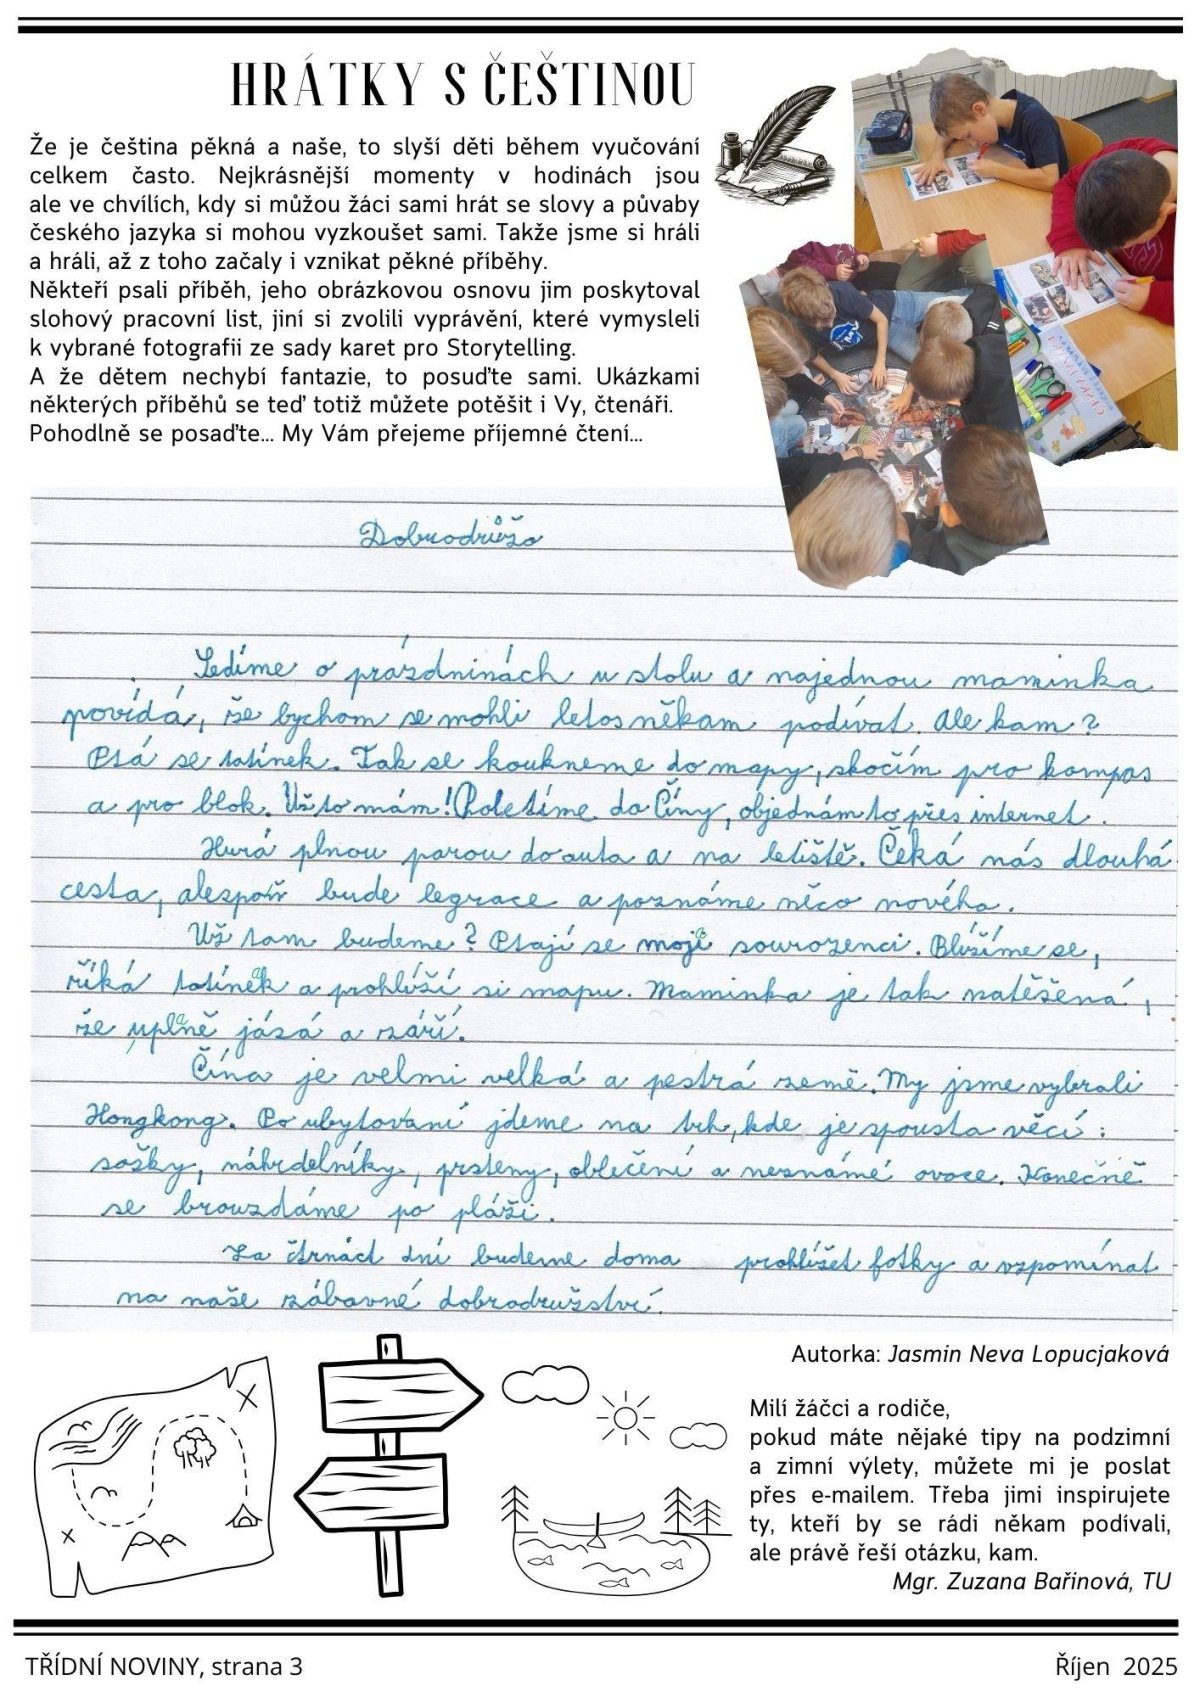 HRÁTKY S ČEŠTINOU
Že je čeština pěkná a naše, to slyší děti během vyučování
celkem často. Nejkrásnější momenty v hodinách jsou
ale ve chvílích, kdy si můžou žáci sami hrát se slovy a půvaby
českého jazyka si mohou vyzkoušet sami. Takže jsme si hráli
a hráli, až z toho začaly i vznikat pěkné příběhy.
Někteří psali příběh, jeho obrázkovou osnovu jim poskytoval
slohový pracovní list, jiní si zvolili vyprávění, které vymysleli
k vybrané fotografii ze sady karet pro Storytelling.
A že dětem nechybí fantazie, to posuďte sami. Ukázkami
některých příběhů se teď totiž můžete potěšit i Vy, čtenáři.
Pohodlně se posaďte... My Vám přejeme příjemné čtení...
Dobrodrůžo
Sedíme o prázdninách u stolu a najednou maminka
povídá, že bychom se mohli letos někam podívat. Ale kam?
Ptá se tatínek. Tak se koukneme do mapy, skočím pro kompas
a pro blok. Už to mám! Poletíme do Číny, objednám to přes internet.
Hurá plnou parou do auta a na letiště. Čeká nás dlouhá
cesta, alespoň bude legrace a poznáme něco nového.
Už tam budeme? Ptají se moji sourozenci. Blížíme se,
říká tatínek a prohlíží si mapu. Maminka je tak natěšená,
že úplně jásá a září.
Čína je velmi velká a pestrá země. My jsme vybrali
Hongkong. Po ubytovaní jdeme na trh, kde je spousta věcí:
sošky, náhrdelníky, prsteny, oblečení a neznámé ovoce. Konečně
se brouzdáme po pláži.
Za čtrnáct dní budeme doma prohlížet fotky a vzpomínat
na naše zábavné dobrodružství.
Autorka: Jasmin Neva Lopucjaková
Milí žáčci a rodiče,
pokud máte nějaké tipy na podzimní
a zimní výlety, můžete mi je poslat
přes e-mailem. Třeba jimi inspirujete
ty, kteří by se rádi někam podívali,
ale právě řeší otázku, kam.
Mgr. Zuzana Bařinová, TU
TŘÍDNÍ NOVINY, strana 3
Říjen 2025